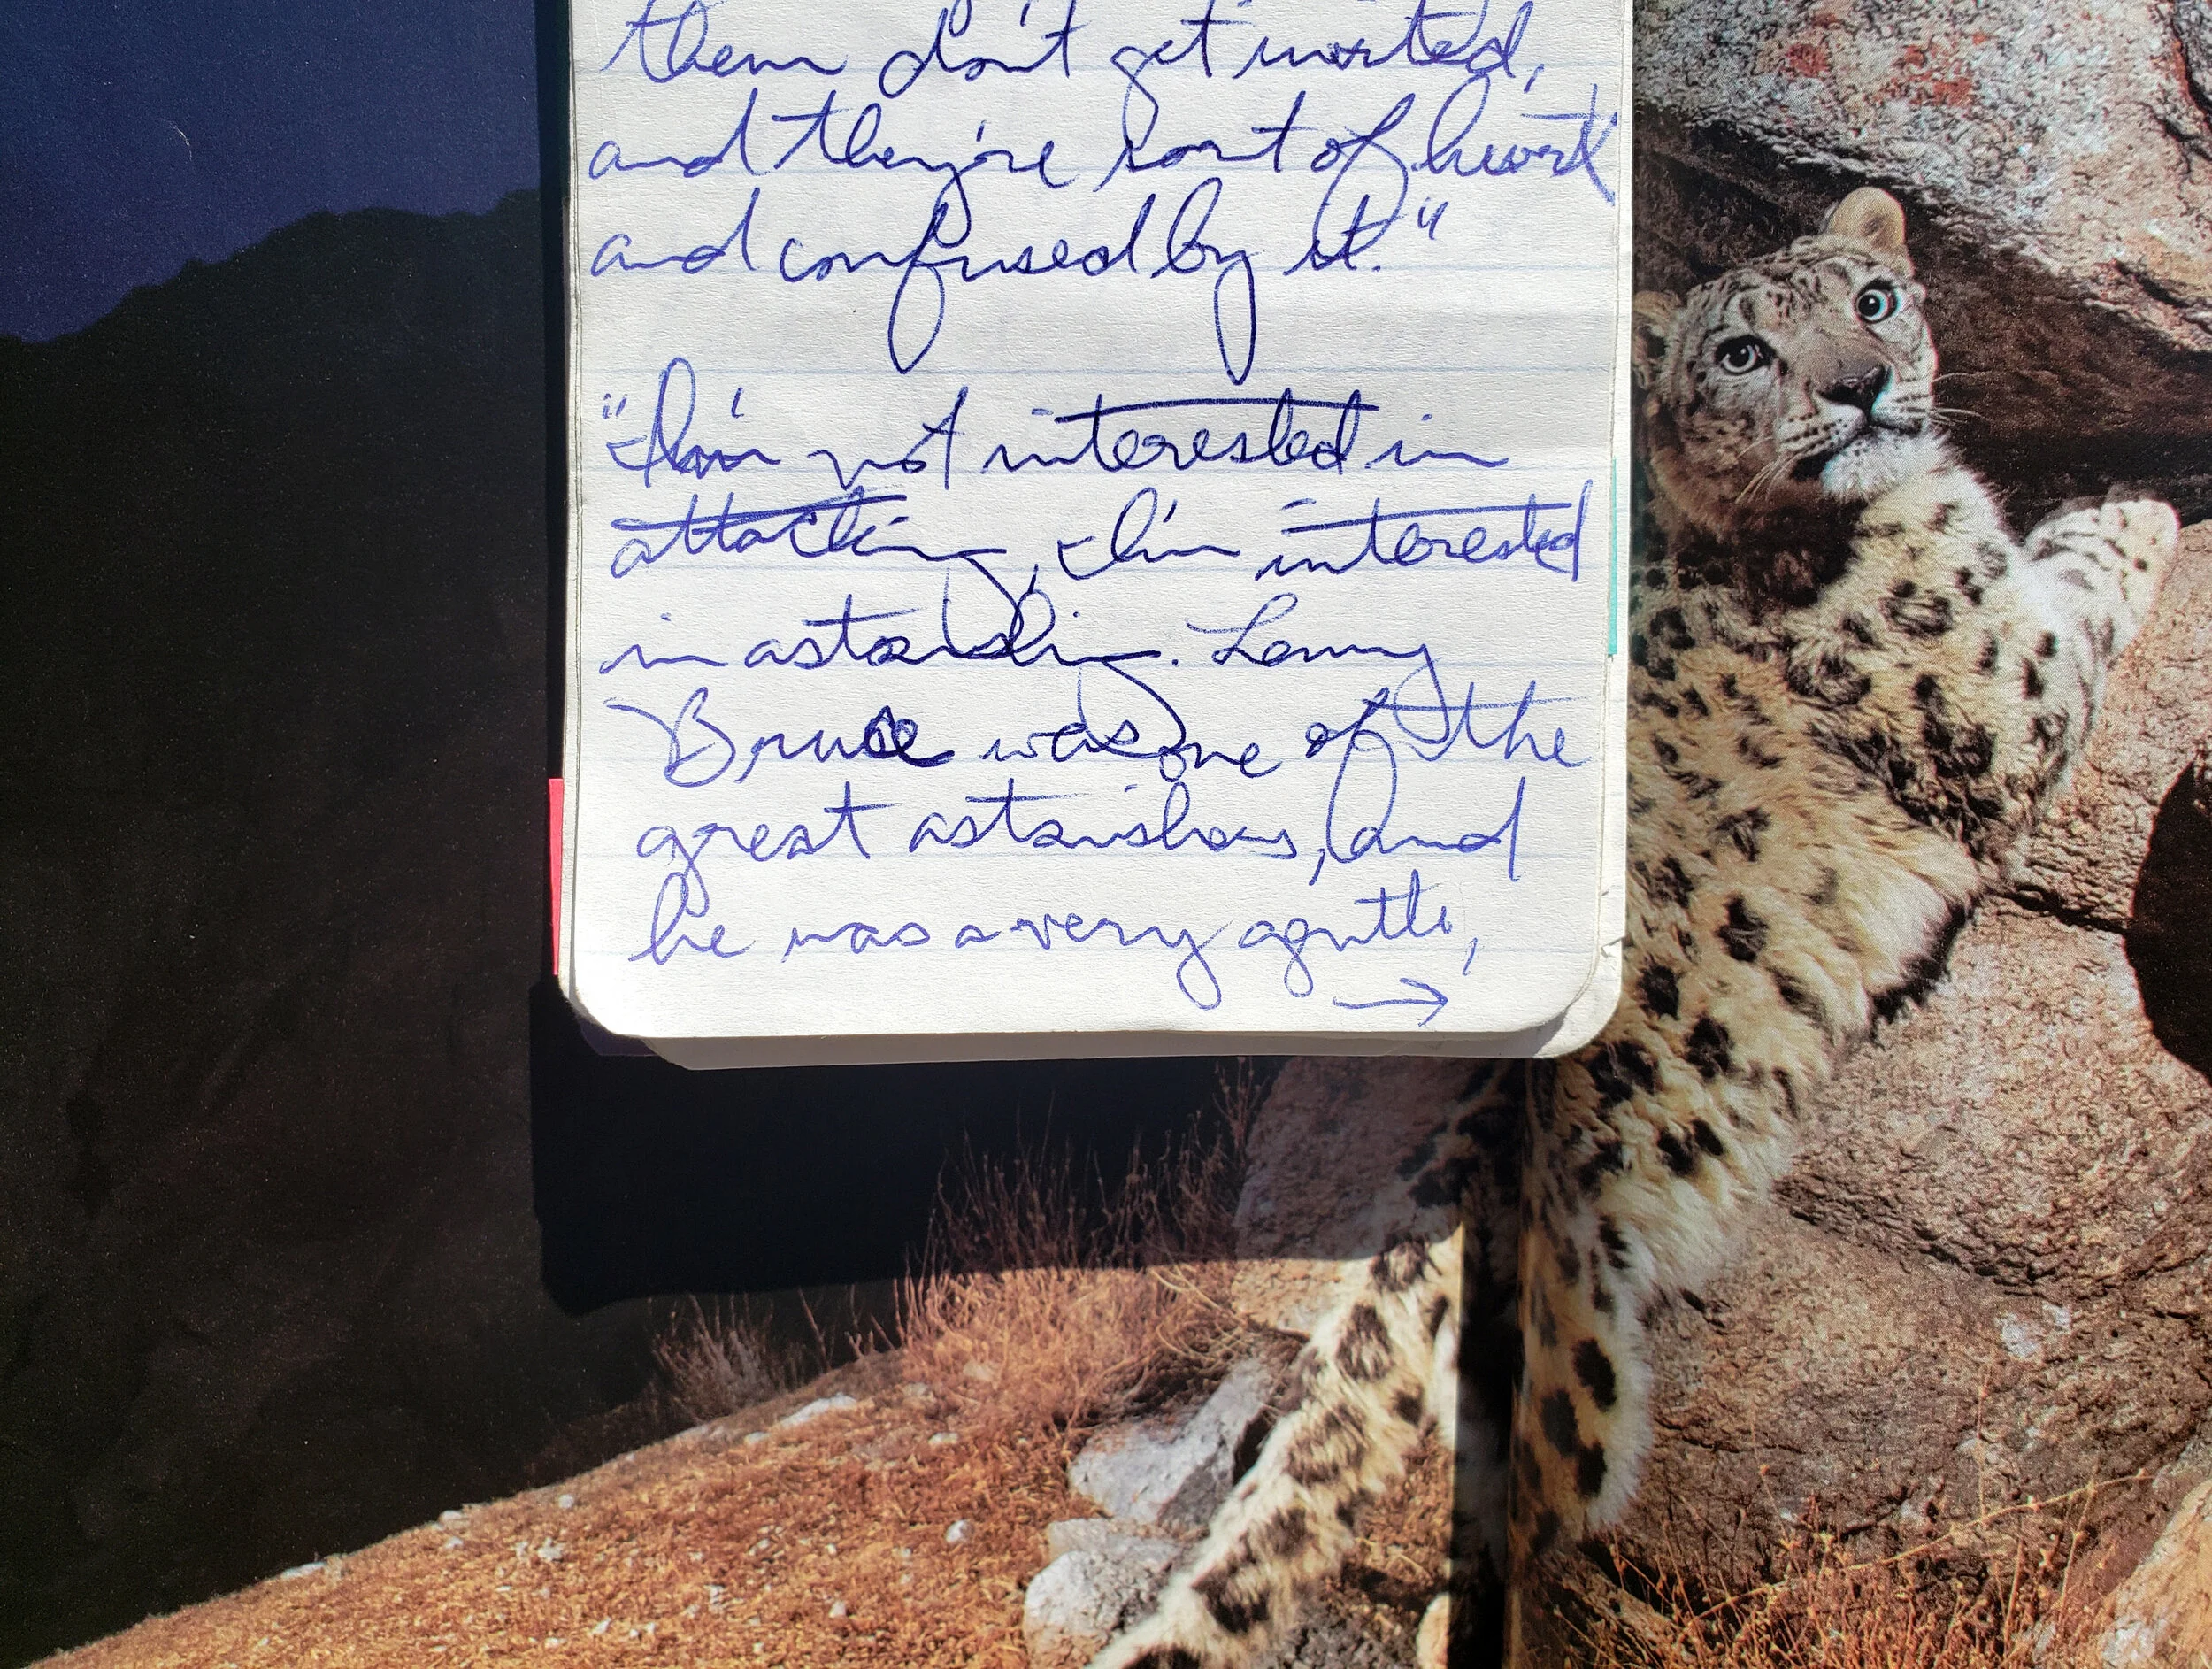 them don't get invited,
and they're sort of hurt
and confused by it."
"I'm not interested in
attacking, I'm interested
in astonishing. Lenny
Bruce was one of the
great astonishers, and
he was a very gentle,
→